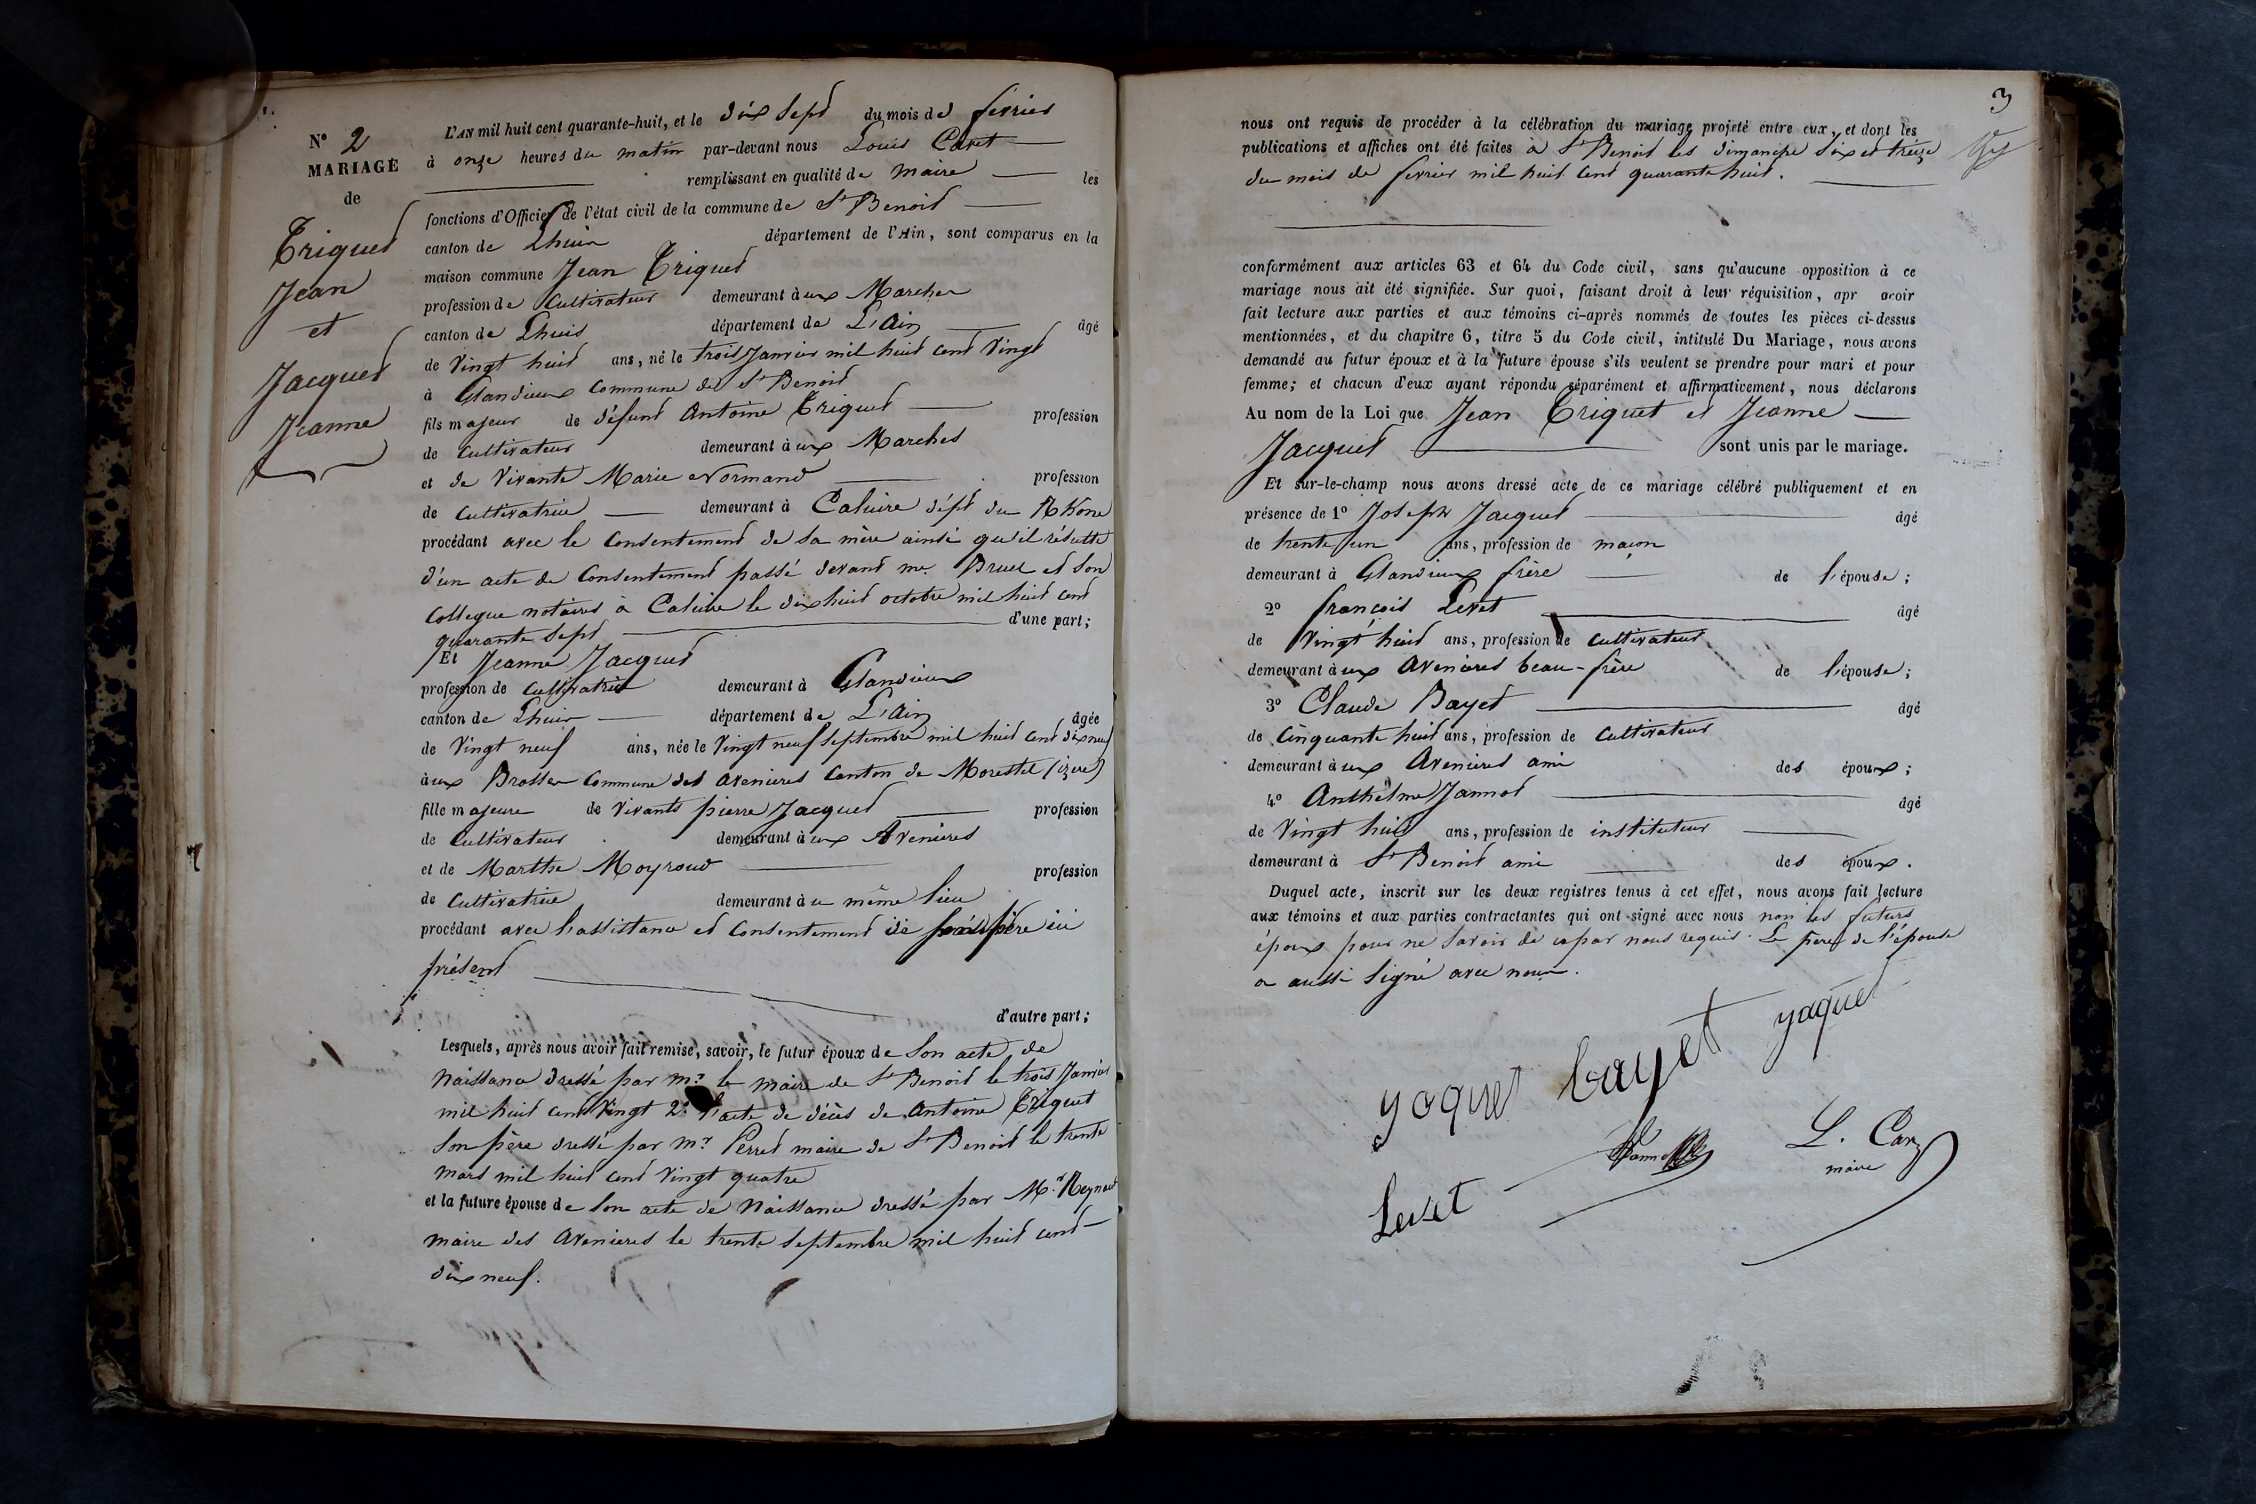 N° 2
MARIAGE
de
Triquet
Jean
et
Jacquet
Jeanne
L'AN mil huit cent quarante-huit, et le dix sept du mois de février
à onze heures du matin par-devant nous Louis Caret
remplissant en qualité de Maire les
fonctions d'Officier de l'état civil de la commune de St Benoit
canton de Lhuis département de l'Ain, sont comparus en la
maison commune Jean Triquet
profession de Cultivateur demeurant à ux Marches
canton de Lhuis département de L'Ain âgé
de Vingt huit ans, né le trois Janvier mil huit cent vingt
à Glandieux Commune de St Benoit
fils majeur de défunt Antoine Triquet profession
de Cultivateur demeurant à ux Marches
et de Vivante Marie Normand profession
de Cultivatrice demeurant à Caluire dépt du Rhone
procédant avec le Consentement de sa mère ainsi qu'il résulte
d'un acte de Consentement passé devant me. Bruel et son
Collegue notaires à Caluire le dix huit octobre mil huit cent
quarante sept d'une part;
Et Jeanne Jacquet
profession de Cultivatrice demeurant à Glandieux
canton de Lhuis département de L'Ain âgée
de Vingt neuf ans, née le Vingt neuf Septembre mil huit cent dix neuf
à ux Brosses Commune des Avenieres Canton de Morestel (izere)
fille majeure de vivants pierre Jacquet profession
de Cultivateur demeurant à ux Avenieres
et de Marthe Moyroud profession
de Cultivatrice demeurant à u même lieu
procédant avec l'assistance et Consentement de père ici
présent
d'autre part;
Lesquels, après nous avoir fait remise, savoir, le futur époux de Son acte de
Naissance dressé par mr. le maire de St Benoit le trois Janvier
mil huit cent Vingt 2° l'acte de décès de Antoine Triquet
Son père dressé par mr Perret maire de St Benoit le trente
mars mil huit cent Vingt quatre
et la future épouse de Son acte de Naissance dressé par Mr. Reynaud
maire des Avenieres le trente Septembre mil huit cent
dix neuf.
3
nous ont requis de procéder à la célébration du mariage projeté entre eux, et dont les
publications et affiches ont été faites à St Benoit les dimanche six et treize
du mois de fevrier mil huit cent quarante huit.
conformément aux articles 63 et 64 du Code civil, sans qu'aucune opposition à ce
mariage nous ait été signifiée. Sur quoi, faisant droit à leur réquisition, apr avoir
fait lecture aux parties et aux témoins ci-après nommés de toutes les pièces ci-dessus
mentionnées, et du chapitre 6, titre 5 du Code civil, intitulé Du Mariage, nous avons
demandé au futur époux et à la future épouse s'ils veulent se prendre pour mari et pour
femme; et chacun d'eux ayant répondu séparément et affirmativement, nous déclarons
Au nom de la Loi que Jean Triquet et Jeanne
Jacquet sont unis par le mariage.
Et sur-le-champ nous avons dressé acte de ce mariage célébré publiquement et en
présence de 1° Joseph Jacquet âgé
de trente un ans, profession de maçon
demeurant à Glandieux frère de l'épouse;
2° françois Levet âgé
de Vingt huit ans, profession de Cultivateur
demeurant à ux Avenieres beau-frère de l'épouse;
3° Claude Bayet âgé
de Cinquante huit ans, profession de Cultivateur
demeurant à ux Avenieres ami des époux;
4° Anthelme Jannot âgé
de Vingt huit ans, profession de instituteur
demeurant à St Benoit ami des époux.
Duquel acte, inscrit sur les deux registres tenus à cet effet, nous avons fait lecture
aux témoins et aux parties contractantes qui ont signé avec nous non les futurs
époux pour ne savoir de ce par nous requis. Le père de l'épouse
a aussi Signé avec nous.
yaquet bayet yaquet
Levet L. Caret
maire